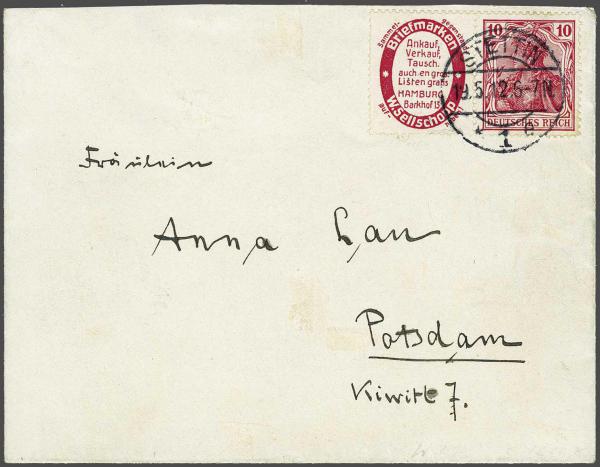 Briefmarken
Ankauf,
Verkauf,
Tausch.
auch en gros
Listen gratis
HAMBURG
Barkhof 13
W. Sellschopp
10 10
DEUTSCHES REICH
STETTIN
19.5.12.6-7N
* 1
Fräulein
Anna Lau
Potsdam
Kiwitt 7.